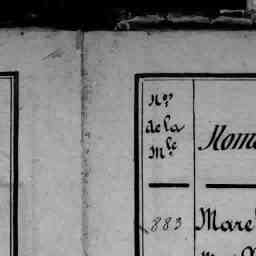 Nos
de la
Mle
Nom
883 Mare